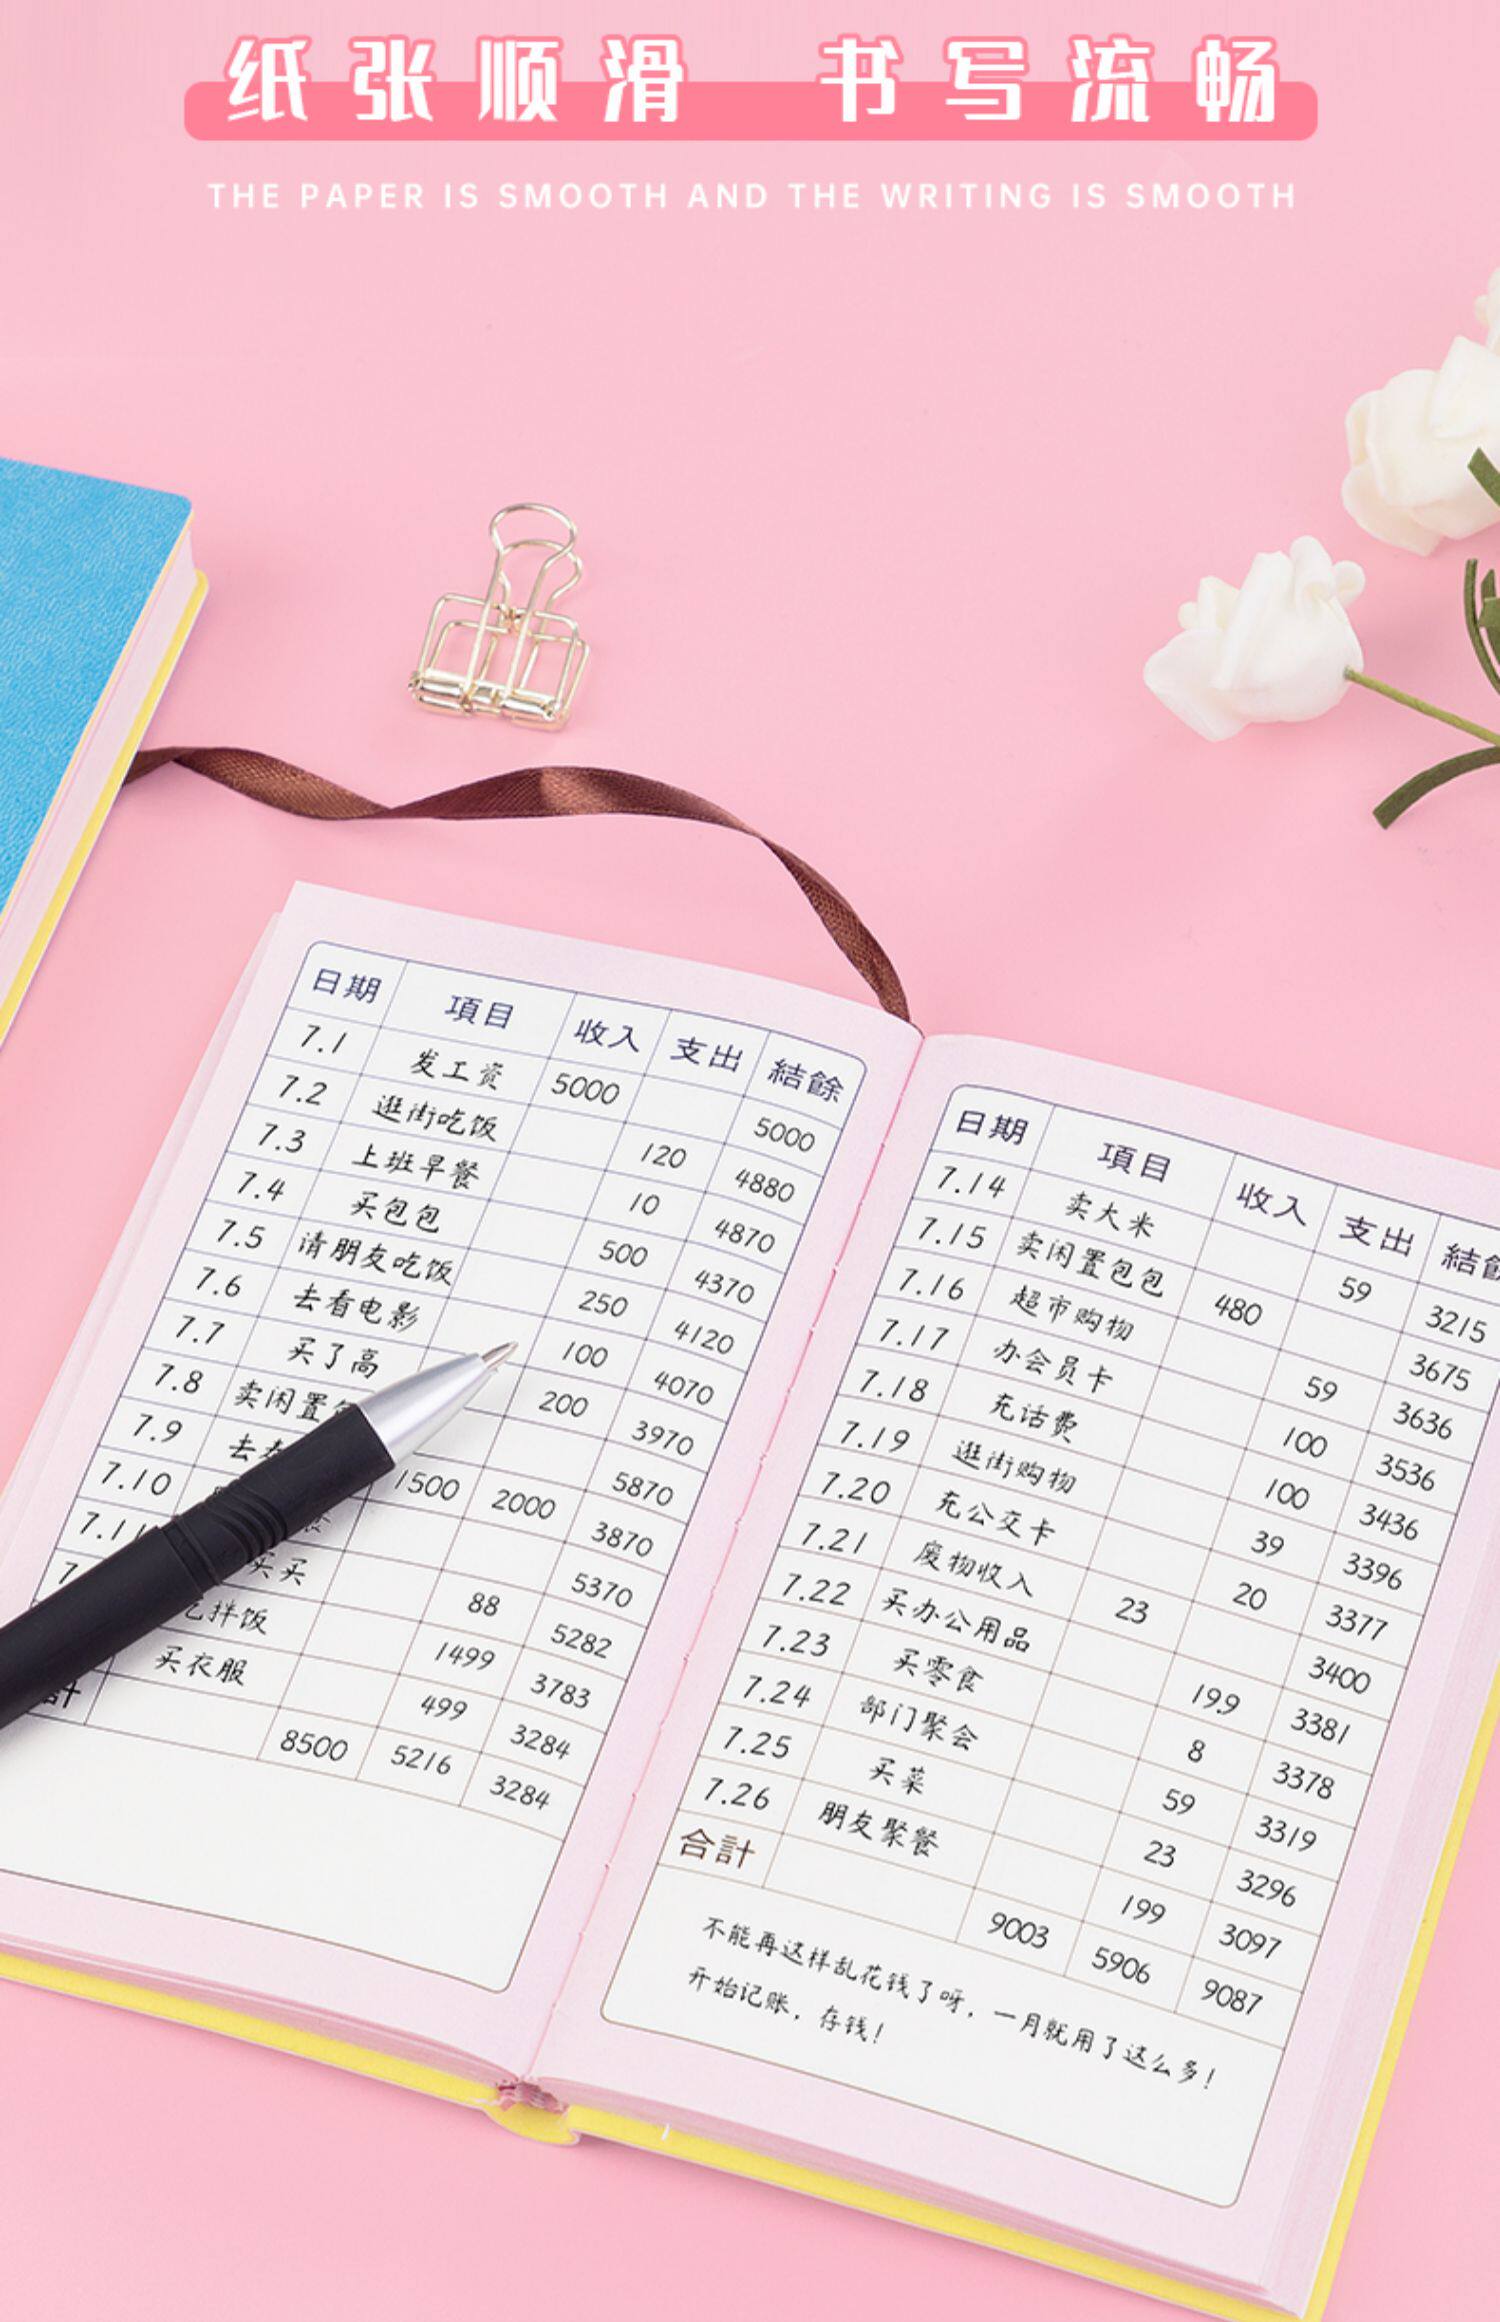 纸张顺滑 书写流畅
THE PAPER IS SMOOTH AND THE WRITING IS SMOOTH
日期 項目 收入 支出 結餘
7.1 发工资 5000 5000
7.2 逛街吃饭 120 4880
7.3 上班早餐 10 4870
7.4 买包包 500 4370
7.5 请朋友吃饭 250 4120
7.6 去看电影 100 4070
7.7 买了高 200 3970
7.8 卖闲置 5870
7.9 去 1500 2000 3870
7.10 餐 5370
7.11 买买 88 5282
7. 拌饭 1499 3783
买衣服 499 3284
計 8500 5216 3284
日期 項目 收入 支出 結
7.14 卖大米 59 3215
7.15 卖闲置包包 480 3675
7.16 超市购物 59 3636
7.17 办会员卡 100 3536
7.18 充话费 100 3436
7.19 逛街购物 39 3396
7.20 充公交卡 20 3377
7.21 废物收入 23 3400
7.22 买办公用品 19.9 3381
7.23 买零食 8 3378
7.24 部门聚会 59 3319
7.25 买菜 23 3296
7.26 朋友聚餐 199 3097
合計 9003 5906 9087
不能再这样乱花钱了呀，一月就用了这么多！
开始记账，存钱！